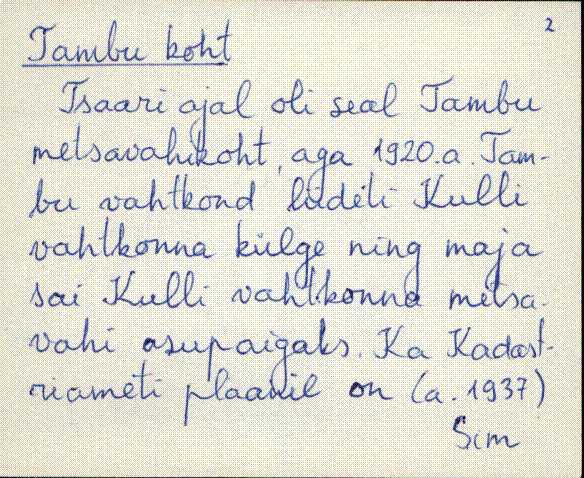 2
Tambu koht
Tsaari ajal oli seal Tambu
metsavahikoht, aga 1920.a. Tam-
bu vahtkond liideti Kulli
vahtkonna külge ning maja
sai Kulli vahtkonna metsa-
vahi asupaigaks. Ka Kadast-
riameti plaanil on (a. 1937)
Sim